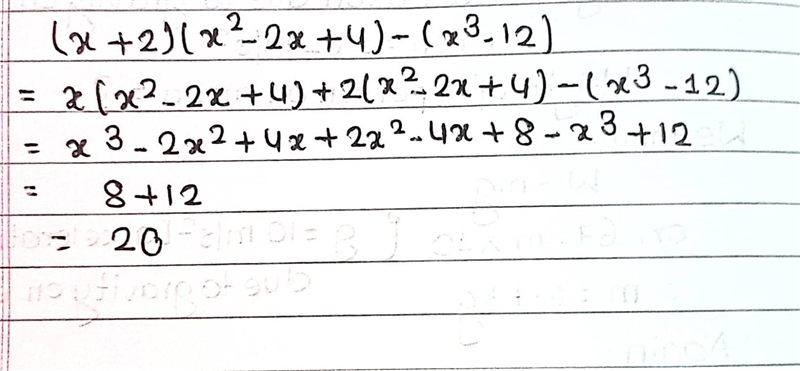 (x+2)(x²-2x+4)-(x³-12)
= x(x²-2x+4)+2(x²-2x+4)-(x³-12)
= x³-2x²+4x+2x²-4x+8-x³+12
= 8+12
= 20